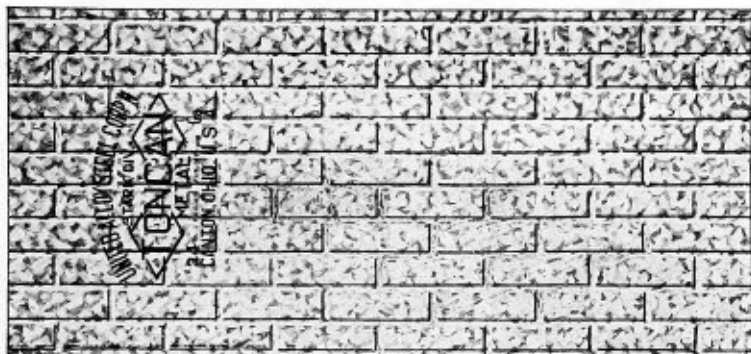 UNITED ALLOY STEEL CORP'N
STARK DIV.
TONCAN
METAL
CANTON OHIO U.S.A.